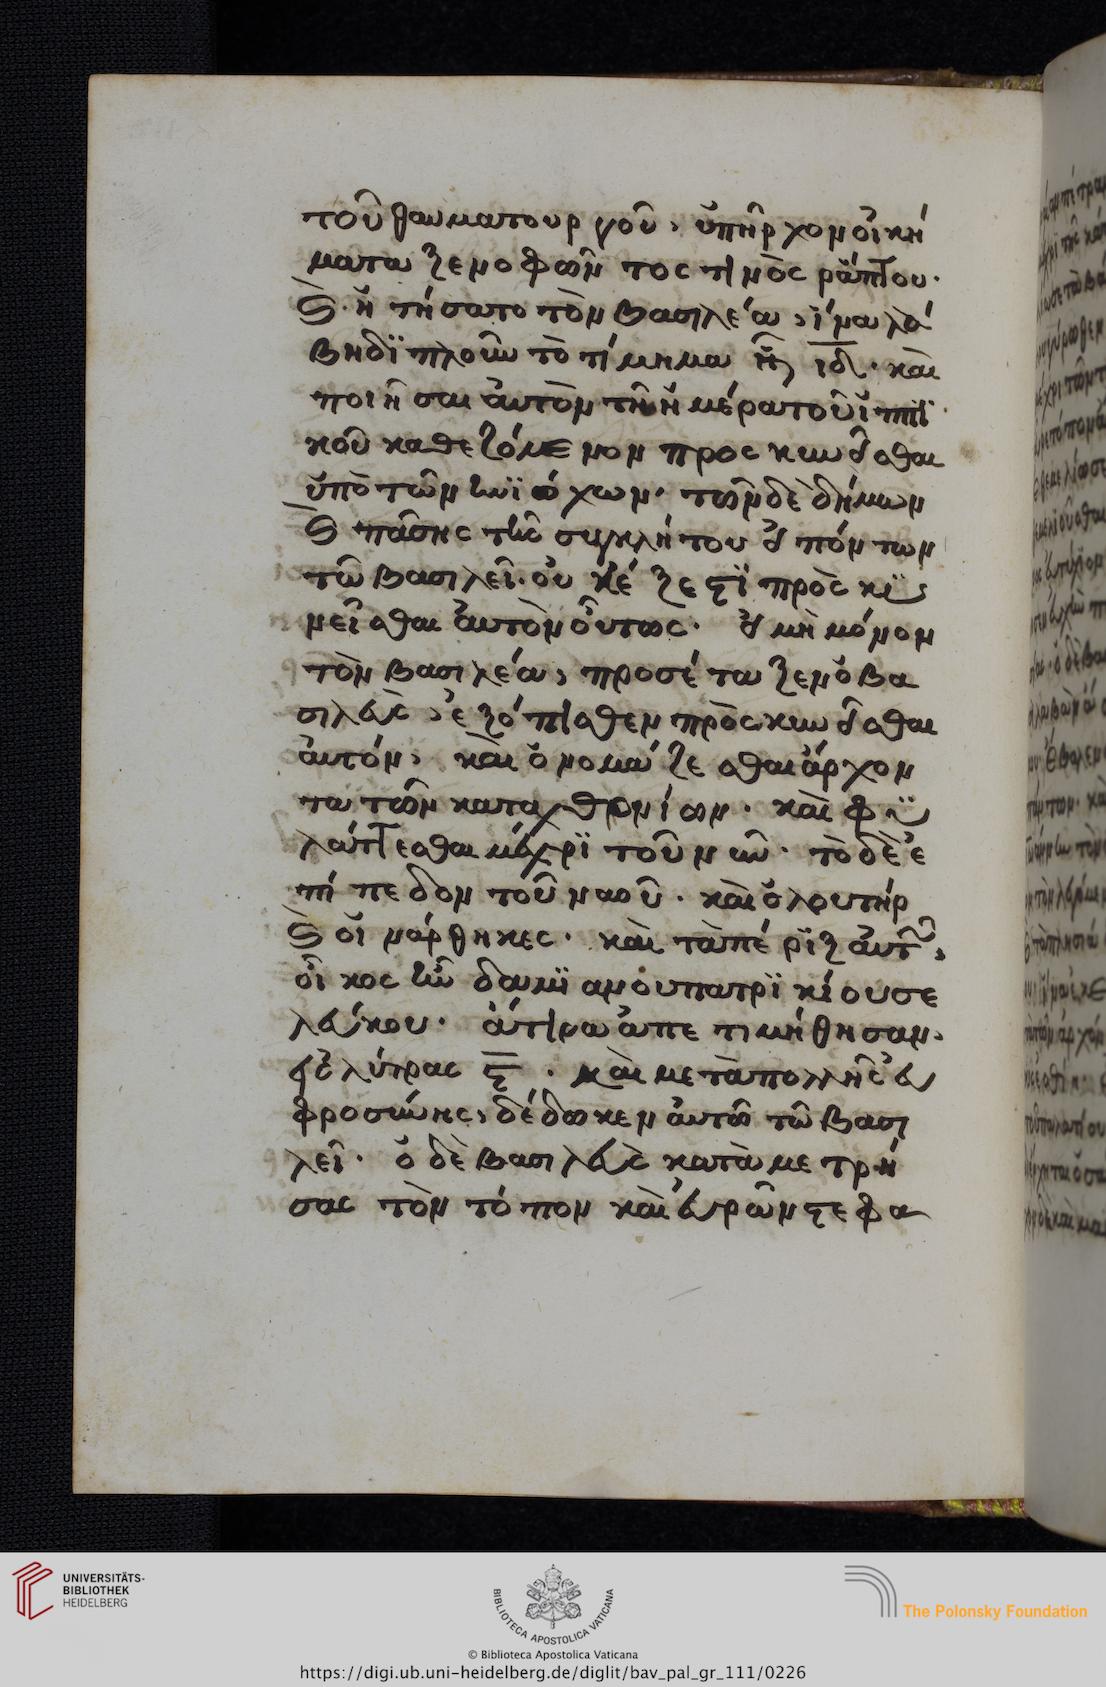 τοῦ θαυματουργοῦ, ὑπῆρχον οἰκή
ματα ξενοφῶντος τινὸς ράπτου.
καὶ ἠτήσατο τὸν βασιλέα, ἵνα λά
βη διπλοῦν τὸ τίμημα
ποιῆσαι αὐτὸν τῆ ἡμέρα τοῦ ἱππι
κοῦ καθεζόμενον προσκυνεῖσθαι
ὑπὸ τῶν ἡνιόχων. τῶν δὲ δήμων
καὶ πάσης τῆς συγκλήτου εἰπόντων
τῶ βασιλεῖ. οὐκ ἔξεστι πρὸςκυ
νεῖσθαι αὐτὸν οὕτως. εἰ μὴ μόνον
τὸν βασιλέα, προσέταξεν ὁ βα
σιλεὺς, ἐξόπισθεν πρὸςκυνεῖσθαι
αὐτόν, καὶ ὀνομάζεσθαι ἄρχον
τα τῶν καταχθονίων. καὶ φυ
λάττεσθαι μέχρι τοῦ νῦν. τὸ δὲ ἐ
πίπεδον τοῦ ναοῦ. καὶ ὁ λουτήρ
καὶ οἱ νάρθηκες. καὶ τὰ πέριξ αὐτοῦ,
οἶκος ἦν δαμιανοῦ πατρικίου σε
λεύκου. ἅτινα ἀπετιμήθησαν,
εἰς λύτρας ϛ̅. καὶ μετὰ πολλῆς εὐ
φροσύνης, δέδωκεν αὐτῶ τῶ βασι
λεῖ. ὁ δὲ βασιλεὺς καταμετρή
σας τὸν τόπον καὶ εὑρῶν στεφα
UNIVERSITÄTS-
BIBLIOTHEK
HEIDELBERG
BIBLIOTECA APOSTOLICA VATICANA
The Polonsky Foundation
© Biblioteca Apostolica Vaticana
https://digi.ub.uni-heidelberg.de/diglit/bav_pal_gr_111/0226